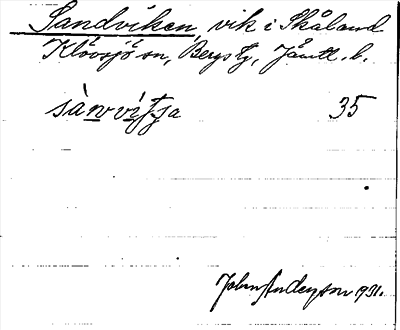 Sandviken, vik i Skåland
Klövsjö sn, Bergs tg, Jämtl. l.
sànvìtja 35
John Anderson 1931.